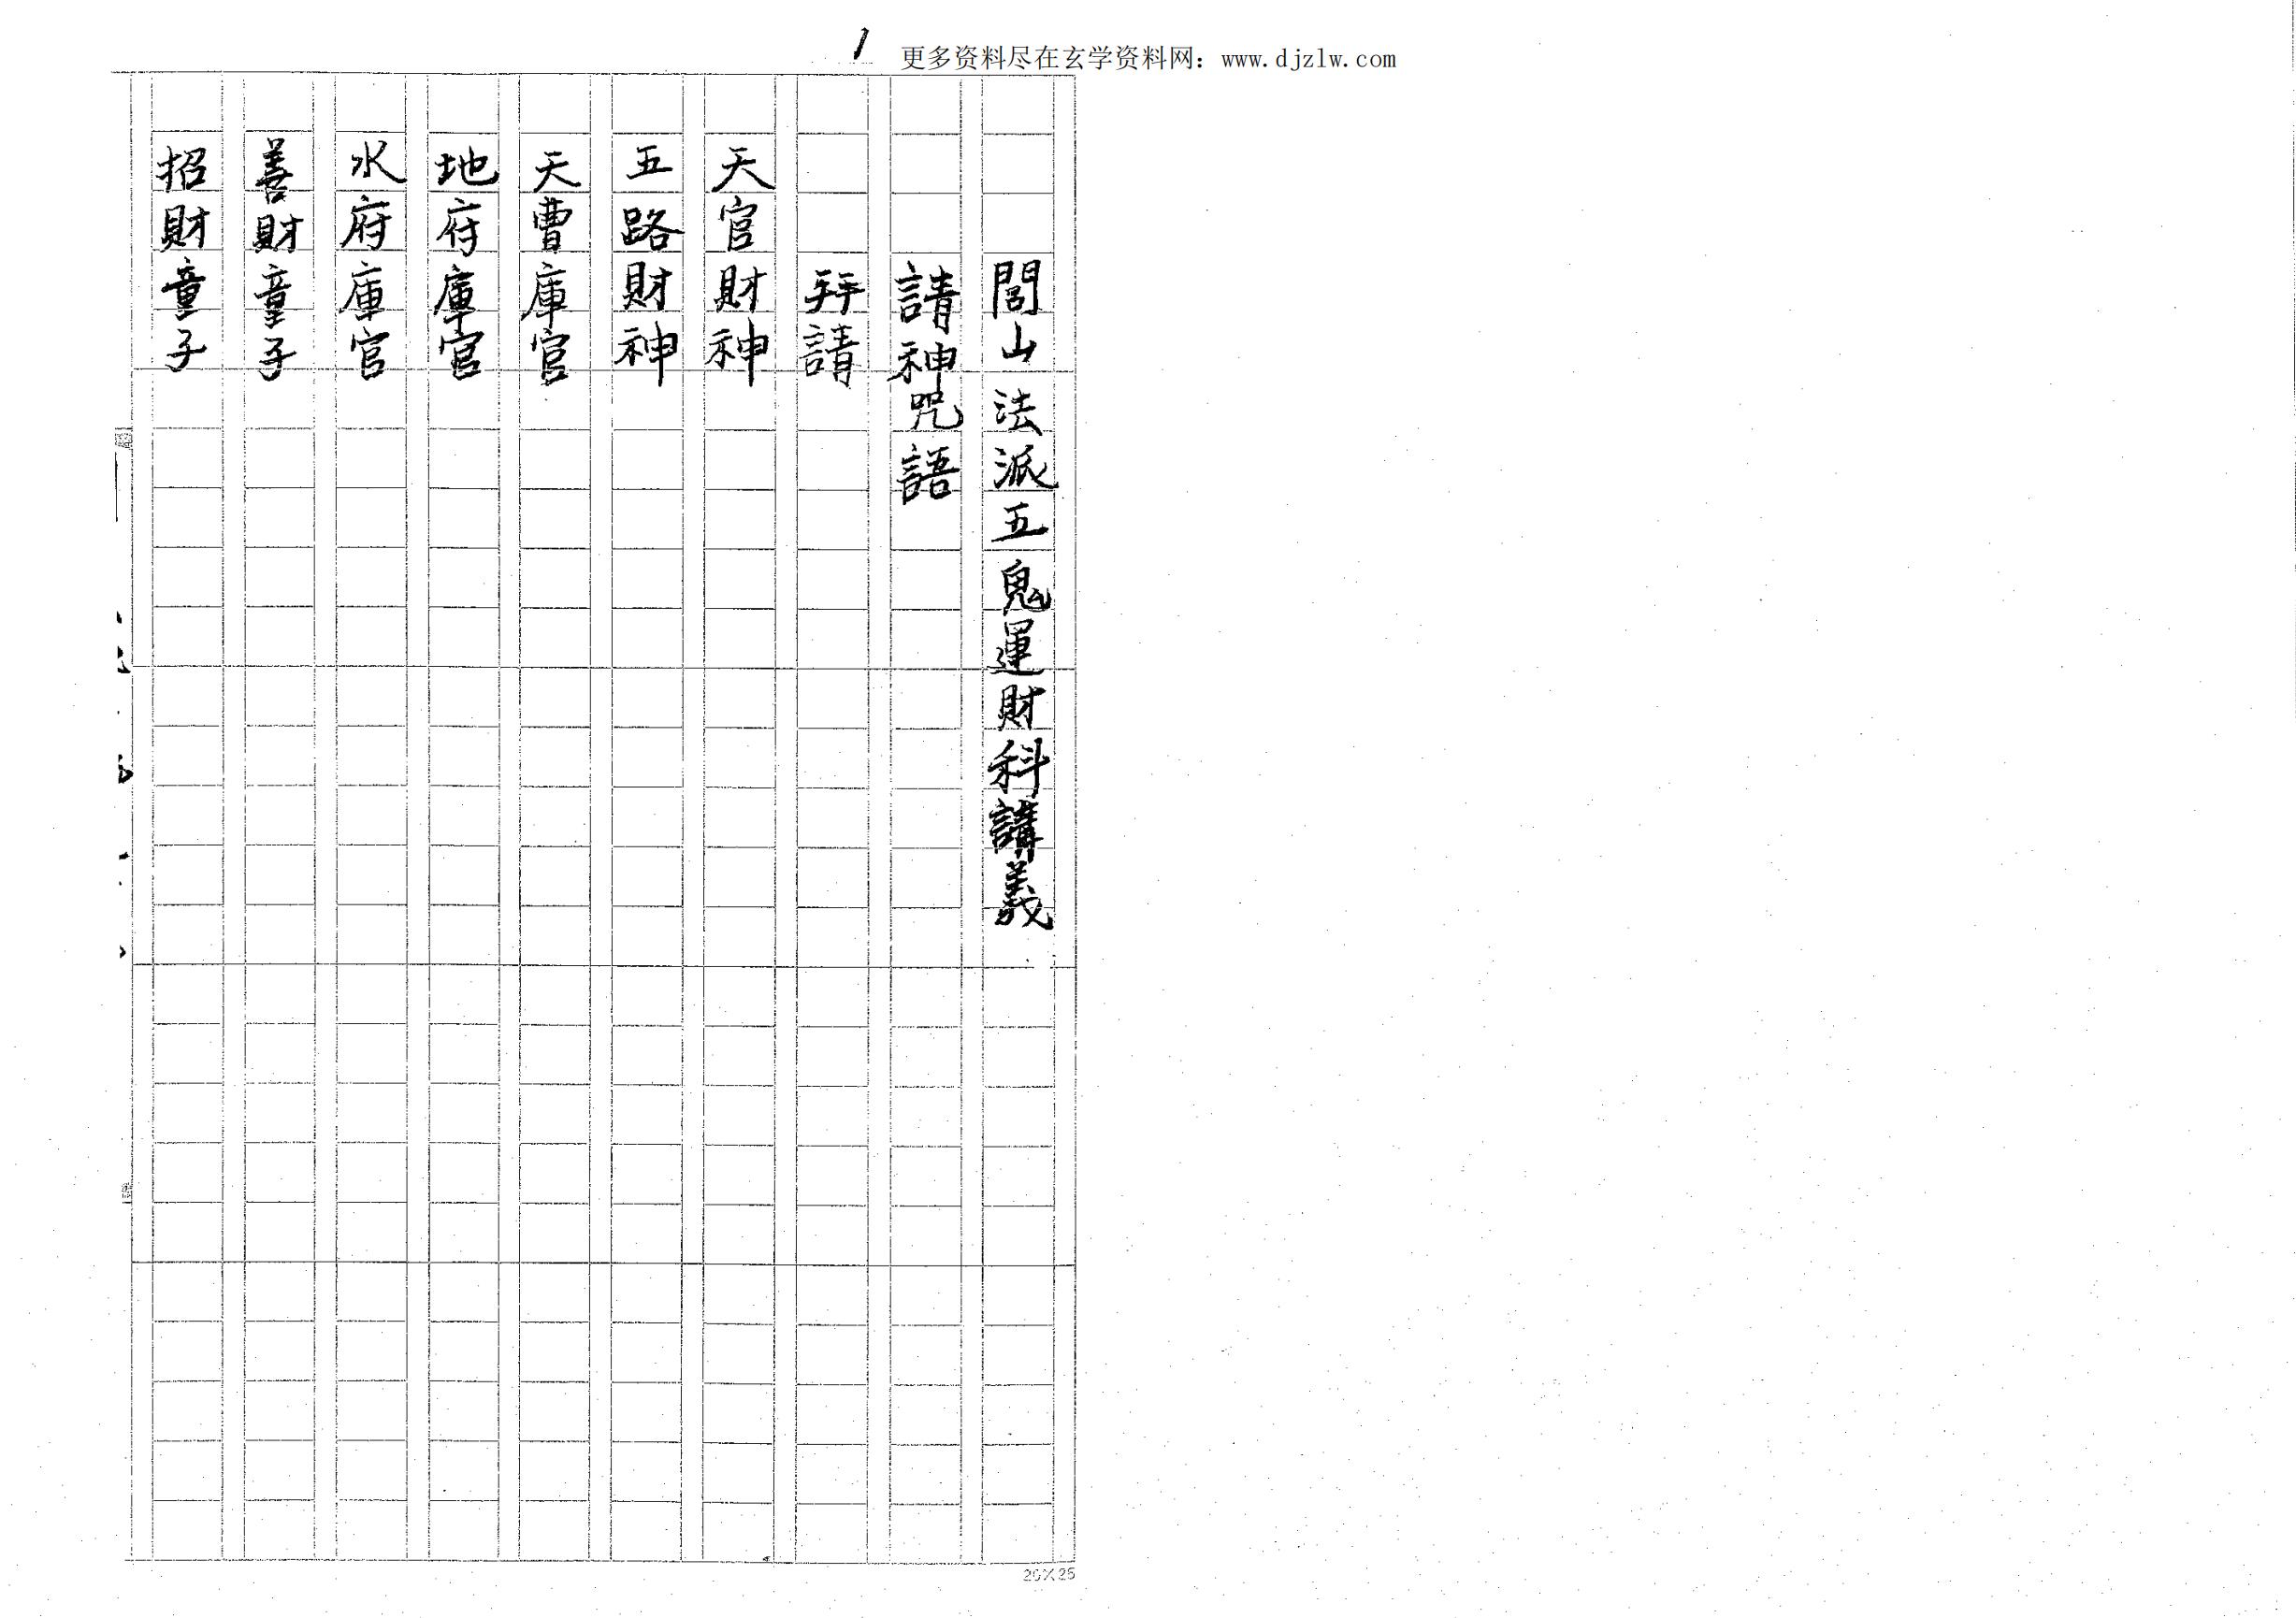 1
更多资料尽在玄学资料网：www.djzlw.com
閭山法派五鬼運財科講義
請神咒語
拜請
天官財神
五路財神
天曹庫官
地府庫官
水府庫官
善財童子
招財童子
20X25